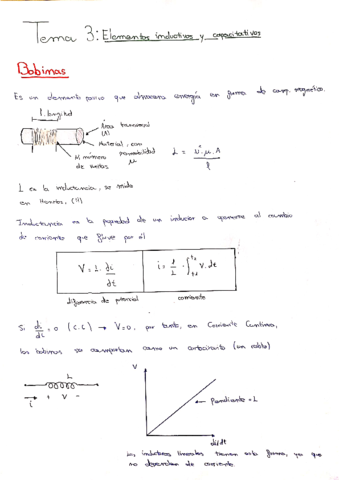 Tema 3: Elementos inductivos y capacitativos
Bobinas
Es un elemento pasivo que almacena energía en forma de camp. magnetico.
l longitud
Área transversal
(A)
Material, con
permeabilidad
μ
N número
de vueltas
L = N²·μ·A / l
L es la inductancia, se mide
en Henrios, (H)
Inductancia es la propiedad de un inductor a oponerse al cambio
de corriente que fluye por él
V = L · di/dt
i = 1/L · ∫ V·dt
diferencia de potencial
corriente
Si di/dt = 0 (C.C) → V=0. por tanto, en Corriente Continua,
las bobinas se comportan como un cortocircuito (un cable)
L
i
+ V -
V
Pendiante = L
di/dt
Los inductores lineales tienen esta forma, ya que
no dependen de corriente.